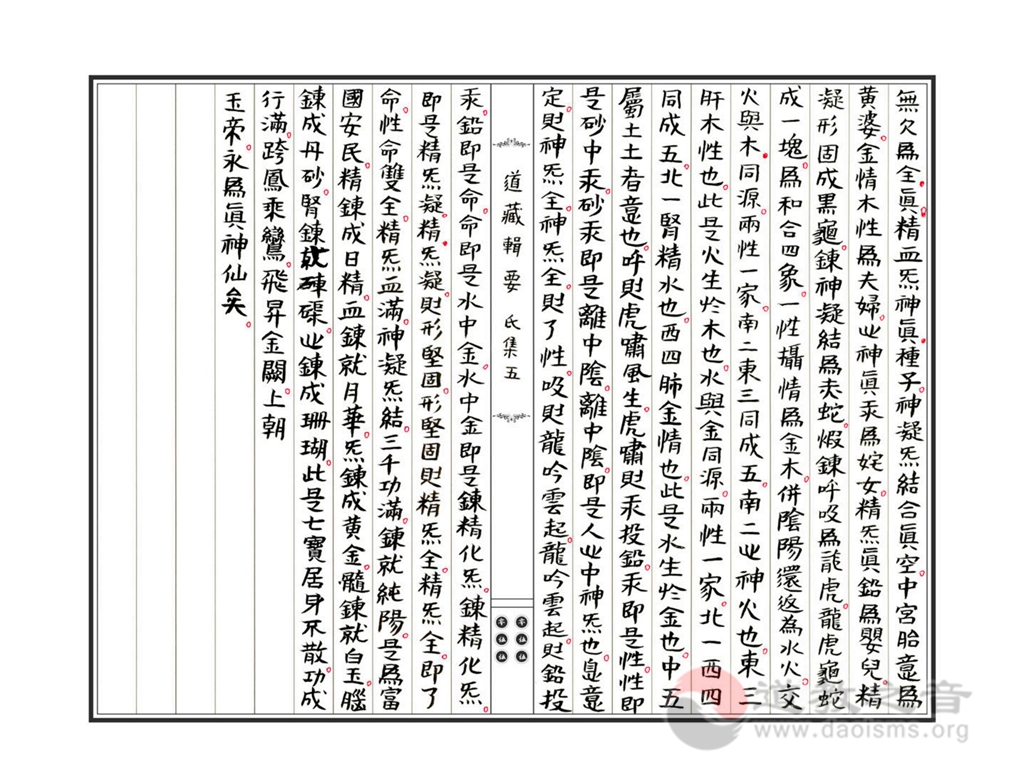 無欠爲全眞精血炁神眞種子神凝炁結合眞空中宮胎意爲
黄婆金情木性爲夫婦㞢神眞汞爲姹女精炁眞鉛爲嬰兒精
凝形固成黒龜鍊神凝結爲夫蛇煅鍊呼吸爲龍虎龍虎龜蛇
成一塊爲和合四象一性攝情爲金木併陰陽還返為水火交
火與木同源兩性一家南二東三同成五南二㞢神火也東三
肝木性也此是火生於木也水與金同源兩性一家北一西四
同成五北一腎精水也西四肺金情也此是水生於金也中五
屬土土者意也呼則虎嘯風生虎嘯則汞投鉛汞即是性性即
是砂中汞砂汞即是離中陰離中陰即是人㞢中神炁也息意
定則神炁全神炁全則了性吸則龍吟雲起龍吟雲起則鉛投
道藏輯要 氐集五
汞鉛即是命命即是水中金水中金即是鍊精化炁鍊精化炁
即是精炁凝精炁凝則形堅固形堅固則精炁全精炁全即了
命性命雙全精炁血滿神凝炁結三千功滿鍊就純陽是爲富
國安民精鍊成日精血鍊就月華炁鍊成黄金髓鍊就白玉腦
鍊成丹砂腎鍊就硨磲㞢鍊成珊瑚此是七寶居身不散功成
行滿跨鳳乘鸞飛昇金闕上朝
玉帝永爲眞神仙矣
道教之音
www.daoisms.org